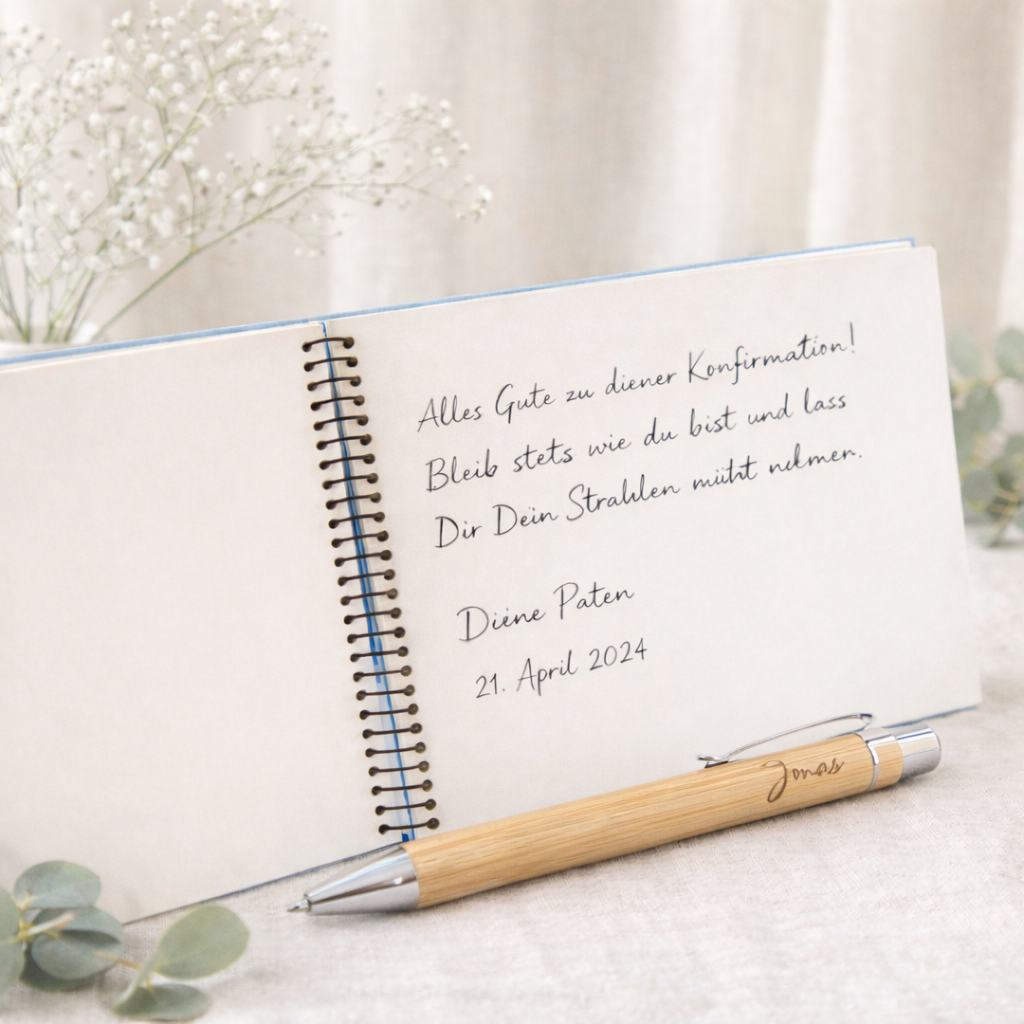 Alles Gute zu diener Konfirmation!
Bleib stets wie du bist und lass
Dir Dein Strahlen
Diene Paten
21. April 2024
Jonas